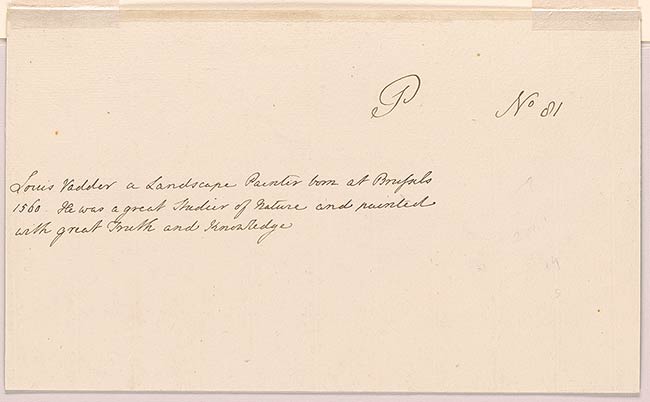 P No 81
Louis Vadder a Landscape Painter born at Brussels
1560. He was a great Studier of Nature and painted
with great Truth and Knowledge